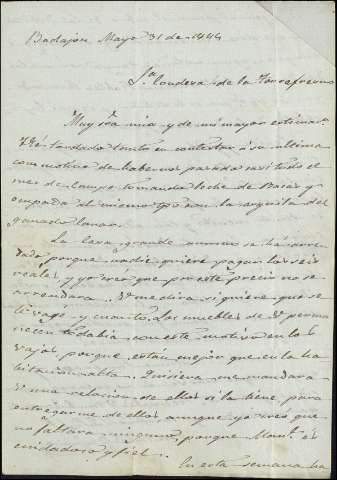 Badajoz Mayo 31 de 1844
Sra Condesa de la Torrefresno
Muy Sra mia y de mi mayor estimacn
He tardado tanto en contestar á su ultima
con motivo de habernos pasado casi todo el
mes de campo tomando leche de
ocupada al mismo tpo con la del
ganado lanar.
La casa grande aun no se há arren
dado, porque nadie quiere pagar los seis
reales y yo creo que por este precio no se
arrendara. V me dira si quiere que se
y cuanto. Los muebles de V perma
necen todabia con este motivo en los
vajos, porque estan mejor que en la ha
bitacion alta. Quisiera me mandara
V una relacion de ellos si la tiene, para
entregarme de ellos, aunque yo creo que
no faltara ninguno, porque Manl es
cuidadoso y fiel.
En esta semana ha